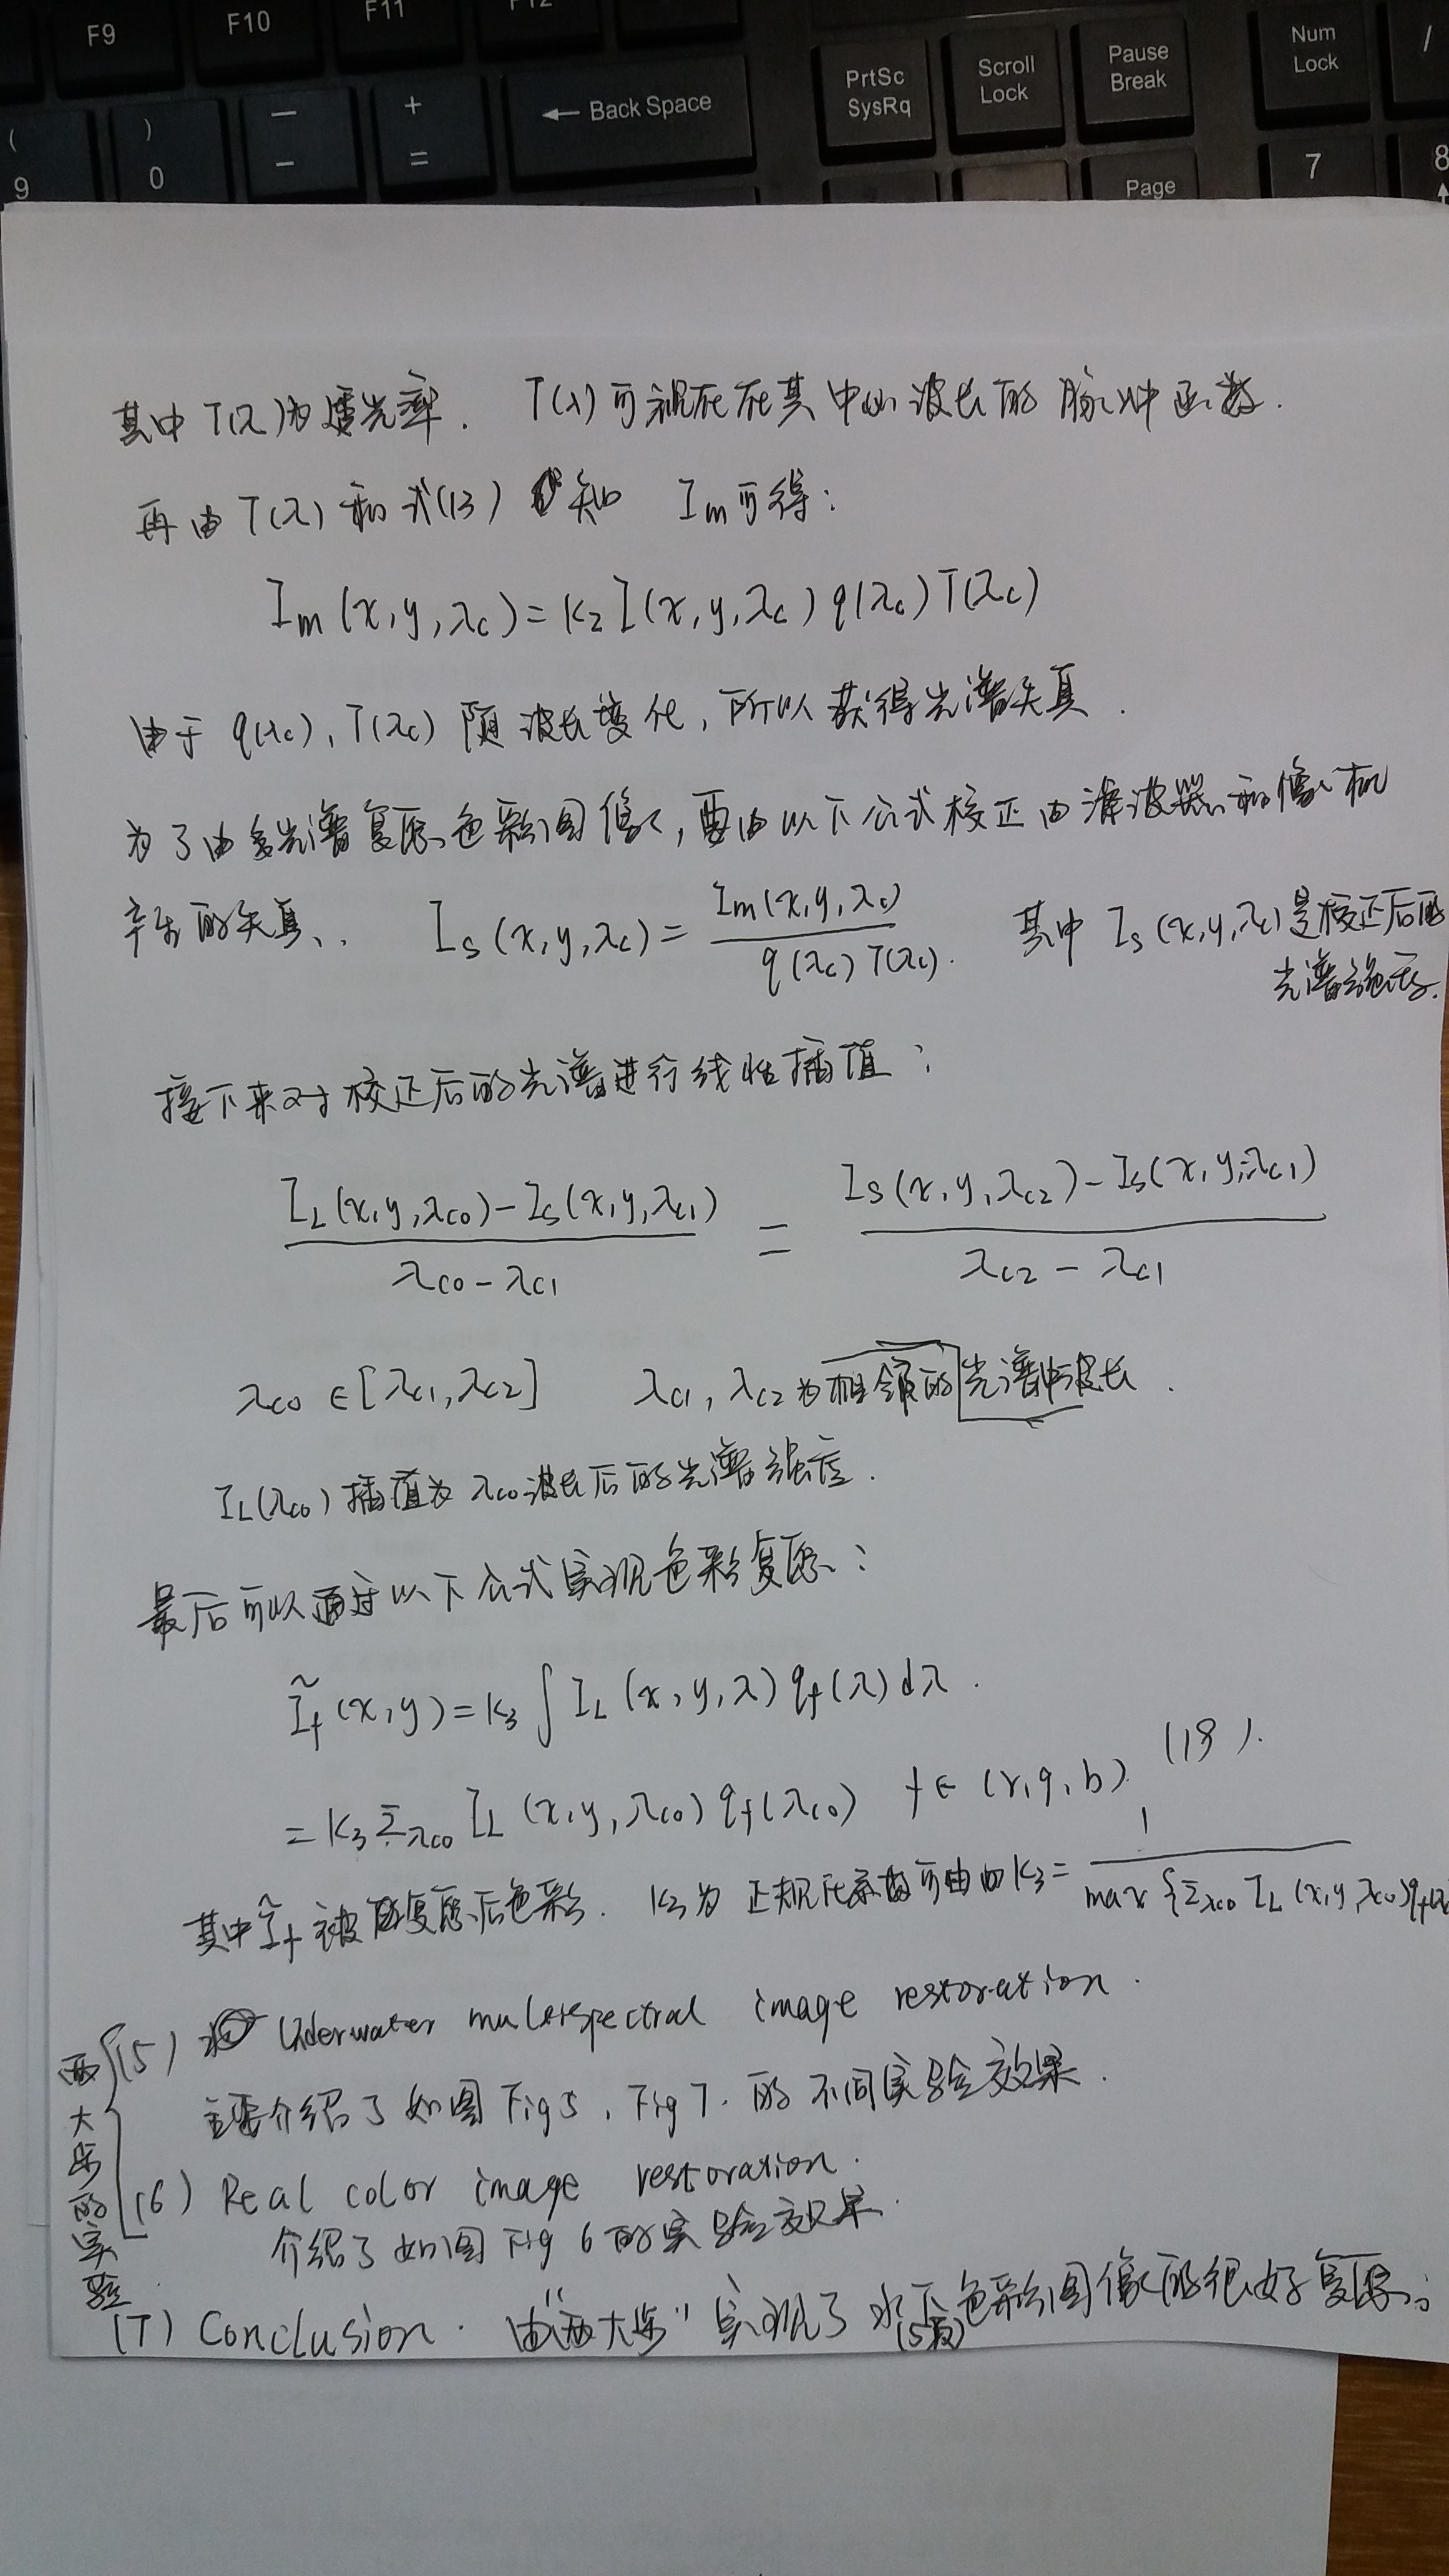 F9 F10 F11 F12
( 9 ) 0 — - + = ← Back Space PrtSc SysRq Scroll Lock Pause Break Num Lock /
Page 7 8
其中 T(λ)为透光率. T(λ)可视在在其中心波长的脉冲函数.
再由 T(λ) 和式(13) 知 Im可得:
Im(x,y,λc)=K2 I(x,y,λc) q(λc) T(λc)
由于 q(λc), T(λc) 随波长变化, 所以获得光谱失真.
为了由多光谱复原色彩图像, 要由以下公式校正由滤波器和像机
产生的失真. Is(x,y,λc)= Im(x,y,λc) / q(λc)T(λc). 其中 Is(x,y,λc)是校正后的
光谱强度.
接下来对校正后的光谱进行线性插值:
(IL(x,y,λc0)-Is(x,y,λc1)) / (λc0-λc1) = (Is(x,y,λc2)-Is(x,y,λc1)) / (λc2-λc1)
λc0∈[λc1,λc2] λc1, λc2为相邻的光谱中波长.
IL(λc0)插值为λc0波长后的光谱强度.
最后可以通过以下公式实现色彩复原:
Ĩf(x,y)=K3∫IL(x,y,λ)qf(λ)dλ.
=K3Σλc0 IL(x,y,λc0)qf(λc0) f∈(r,g,b) (18).
其中Ĩf被复原后色彩. K3为正规化系数可由 K3= 1 / max{Σλc0 IL(x,y,λc0)qf(λ
两大步的实验
(5) Uderwater multispectral image restoration.
主要介绍了如图Fig5, Fig7.的不同实验效果.
(6) Real color image restoration.
介绍了如图Fig 6的实验效果.
(7) Conclusion. 由"两大步"实现了水下色彩图像的很好复原.
(5页)